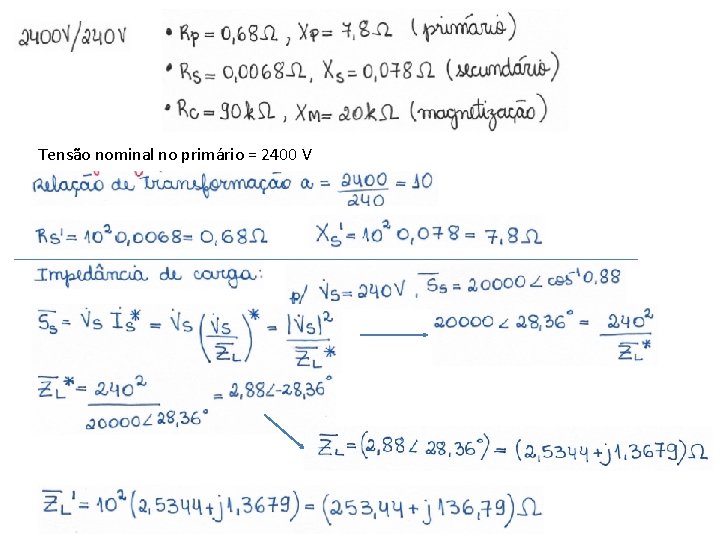 2400V/240V
• Rp = 0,68Ω, Xp = 7,8Ω (primário)
• Rs = 0,0068Ω, Xs = 0,078Ω (secundário)
• Rc = 90kΩ, XM = 20kΩ (magnetização)
Tensão nominal no primário = 2400 V
Relação de transformação a = 2400/240 = 10
Rs' = 10² 0,0068 = 0,68Ω Xs' = 10² 0,078 = 7,8Ω
Impedância de carga: p/ V̇s = 240V, S̄s = 20000∠cos⁻¹0,88
S̄s = V̇s İs* = V̇s (V̇s/Z̄L)* = |V̇s|²/Z̄L* 20000∠28,36° = 240²/Z̄L*
Z̄L* = 240²/20000∠28,36° = 2,88∠-28,36°
Z̄L = (2,88∠28,36°) = (2,5344+j1,3679)Ω
Z̄L' = 10² (2,5344+j1,3679) = (253,44+j136,79)Ω